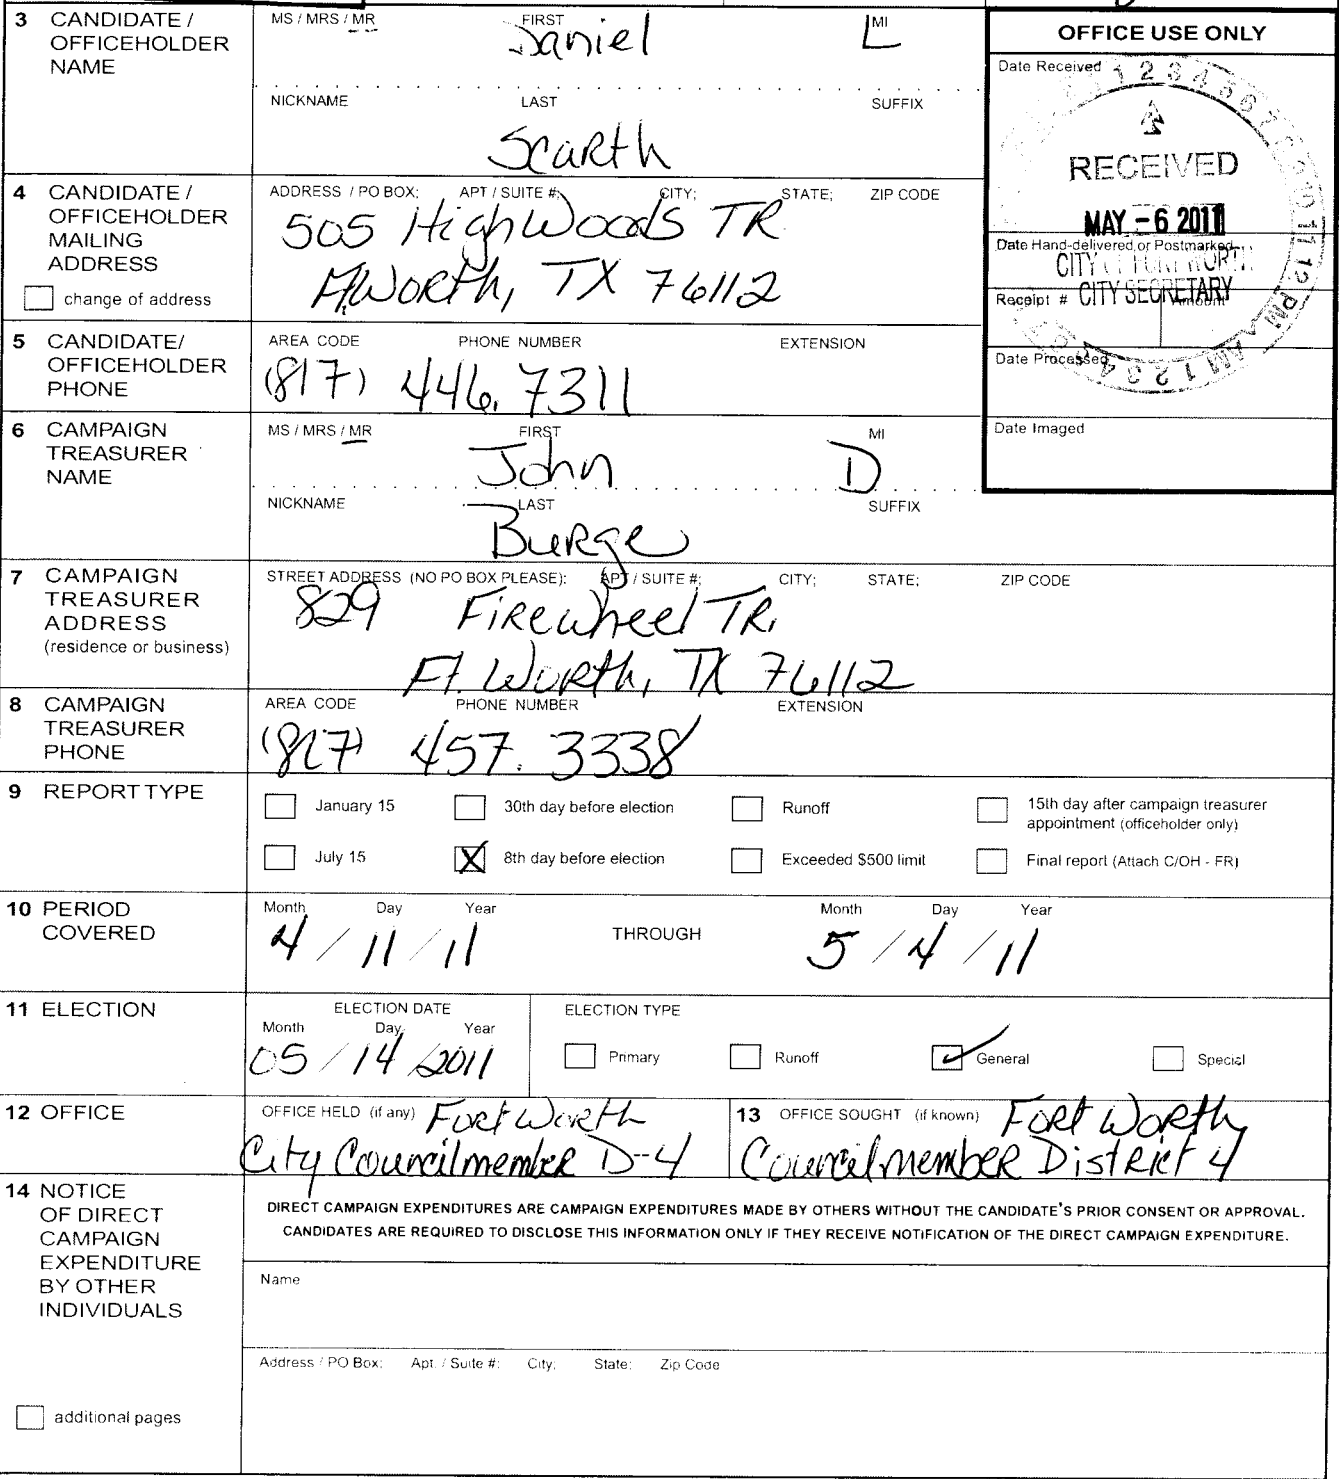 3 CANDIDATE / OFFICEHOLDER NAME
MS / MRS / MR FIRST MI
Daniel L
NICKNAME LAST SUFFIX
Scarth
OFFICE USE ONLY
Date Received
RECEIVED
MAY - 6 2011
Date Hand-delivered or Postmarked
CITY OF FORT WORTH
CITY SECRETARY
Receipt # Amount
Date Processed
Date Imaged
4 CANDIDATE / OFFICEHOLDER MAILING ADDRESS
change of address
ADDRESS / PO BOX; APT / SUITE #; CITY; STATE; ZIP CODE
505 Highwoods TR
Ft. Worth, TX 76112
5 CANDIDATE/ OFFICEHOLDER PHONE
AREA CODE PHONE NUMBER EXTENSION
(817) 446.7311
6 CAMPAIGN TREASURER NAME
MS / MRS / MR FIRST MI
John D
NICKNAME LAST SUFFIX
Burge
7 CAMPAIGN TREASURER ADDRESS
(residence or business)
STREET ADDRESS (NO PO BOX PLEASE); APT / SUITE #; CITY; STATE; ZIP CODE
829 Firewheel TR.
Ft. Worth, TX 76112
8 CAMPAIGN TREASURER PHONE
AREA CODE PHONE NUMBER EXTENSION
(817) 457.3338
9 REPORT TYPE
January 15 30th day before election Runoff 15th day after campaign treasurer appointment (officeholder only)
July 15 X 8th day before election Exceeded $500 limit Final report (Attach C/OH - FR)
10 PERIOD COVERED
Month Day Year Month Day Year
4 / 11 / 11 THROUGH 5 / 4 / 11
11 ELECTION
ELECTION DATE
Month Day Year
05 / 14 / 2011
ELECTION TYPE
Primary Runoff General Special
12 OFFICE
OFFICE HELD (if any) Fort Worth
City Councilmember D-4
13 OFFICE SOUGHT (if known) Fort Worth
Councilmember District 4
14 NOTICE OF DIRECT CAMPAIGN EXPENDITURE BY OTHER INDIVIDUALS
additional pages
DIRECT CAMPAIGN EXPENDITURES ARE CAMPAIGN EXPENDITURES MADE BY OTHERS WITHOUT THE CANDIDATE'S PRIOR CONSENT OR APPROVAL.
CANDIDATES ARE REQUIRED TO DISCLOSE THIS INFORMATION ONLY IF THEY RECEIVE NOTIFICATION OF THE DIRECT CAMPAIGN EXPENDITURE.
Name
Address / PO Box; Apt. / Suite #; City; State; Zip Code